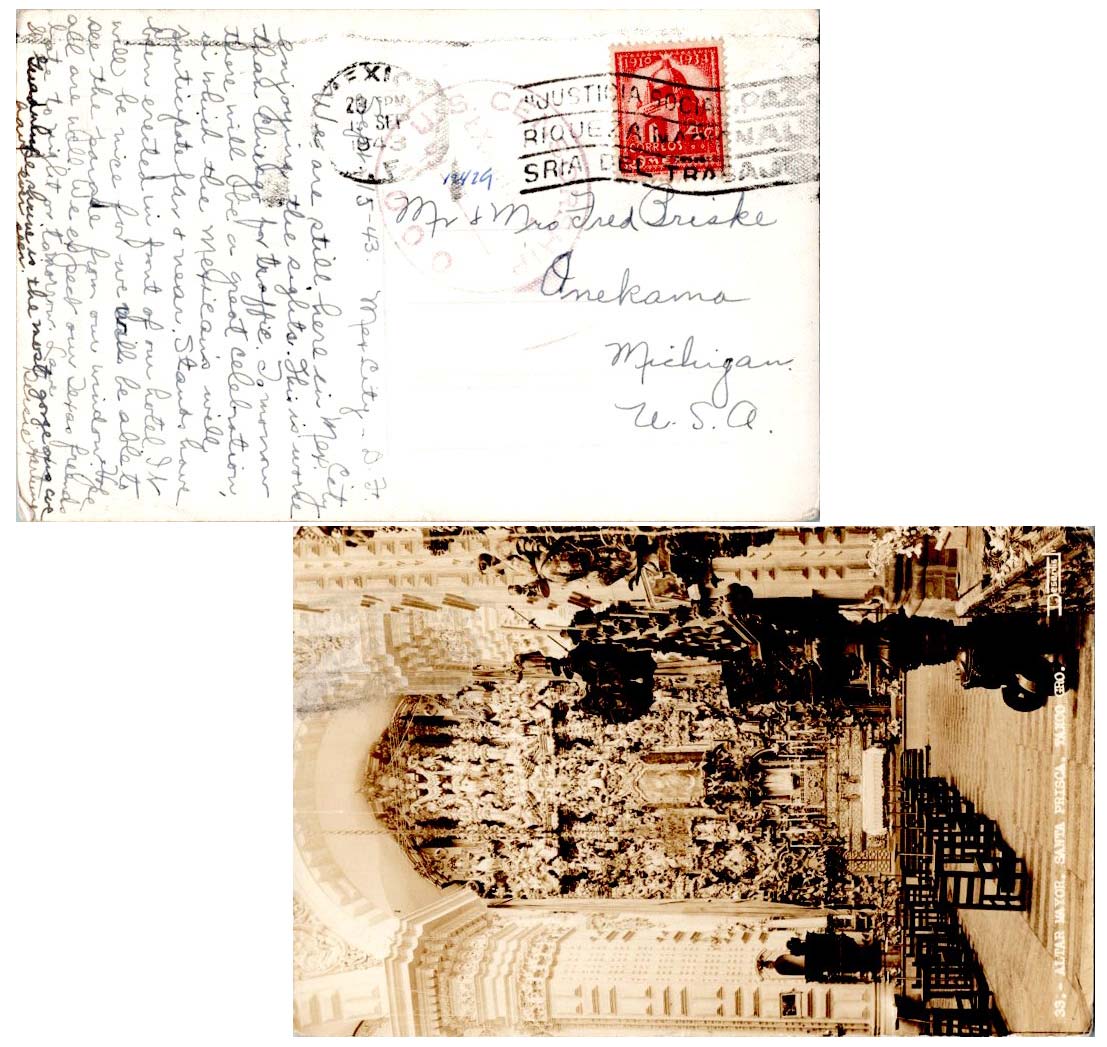 Mex City - D.F.
9/15-43.
We are still here in Mex City
enjoying the sights. This is worse
than Chicago for traffic. Tomorrow
there will be a great celebration
in which the Mexicans will
participate far & near. Stands have
been erected in front of our hotel. It
will be nice for we will be able to
see the parade from our window. We
all are well. We expect our Texas friends
here tonight or tomorrow. Love
Guadalupe shrine is the most gorgeous we
have ever seen.
MEXICO
20 SEP
1943
JUSTICIA SOCIAL
RIQUEZA NACIONAL
SRIA DEL TRABAJO
1910 1934
CORREOS
U.S. CENSORSHIP
13429
Mr & Mrs Fred Briske
Onekama
Michigan.
U. S. A.
33.- ALTAR MAYOR. SANTA PRISCA. TAXCO GRO.-
Desentis